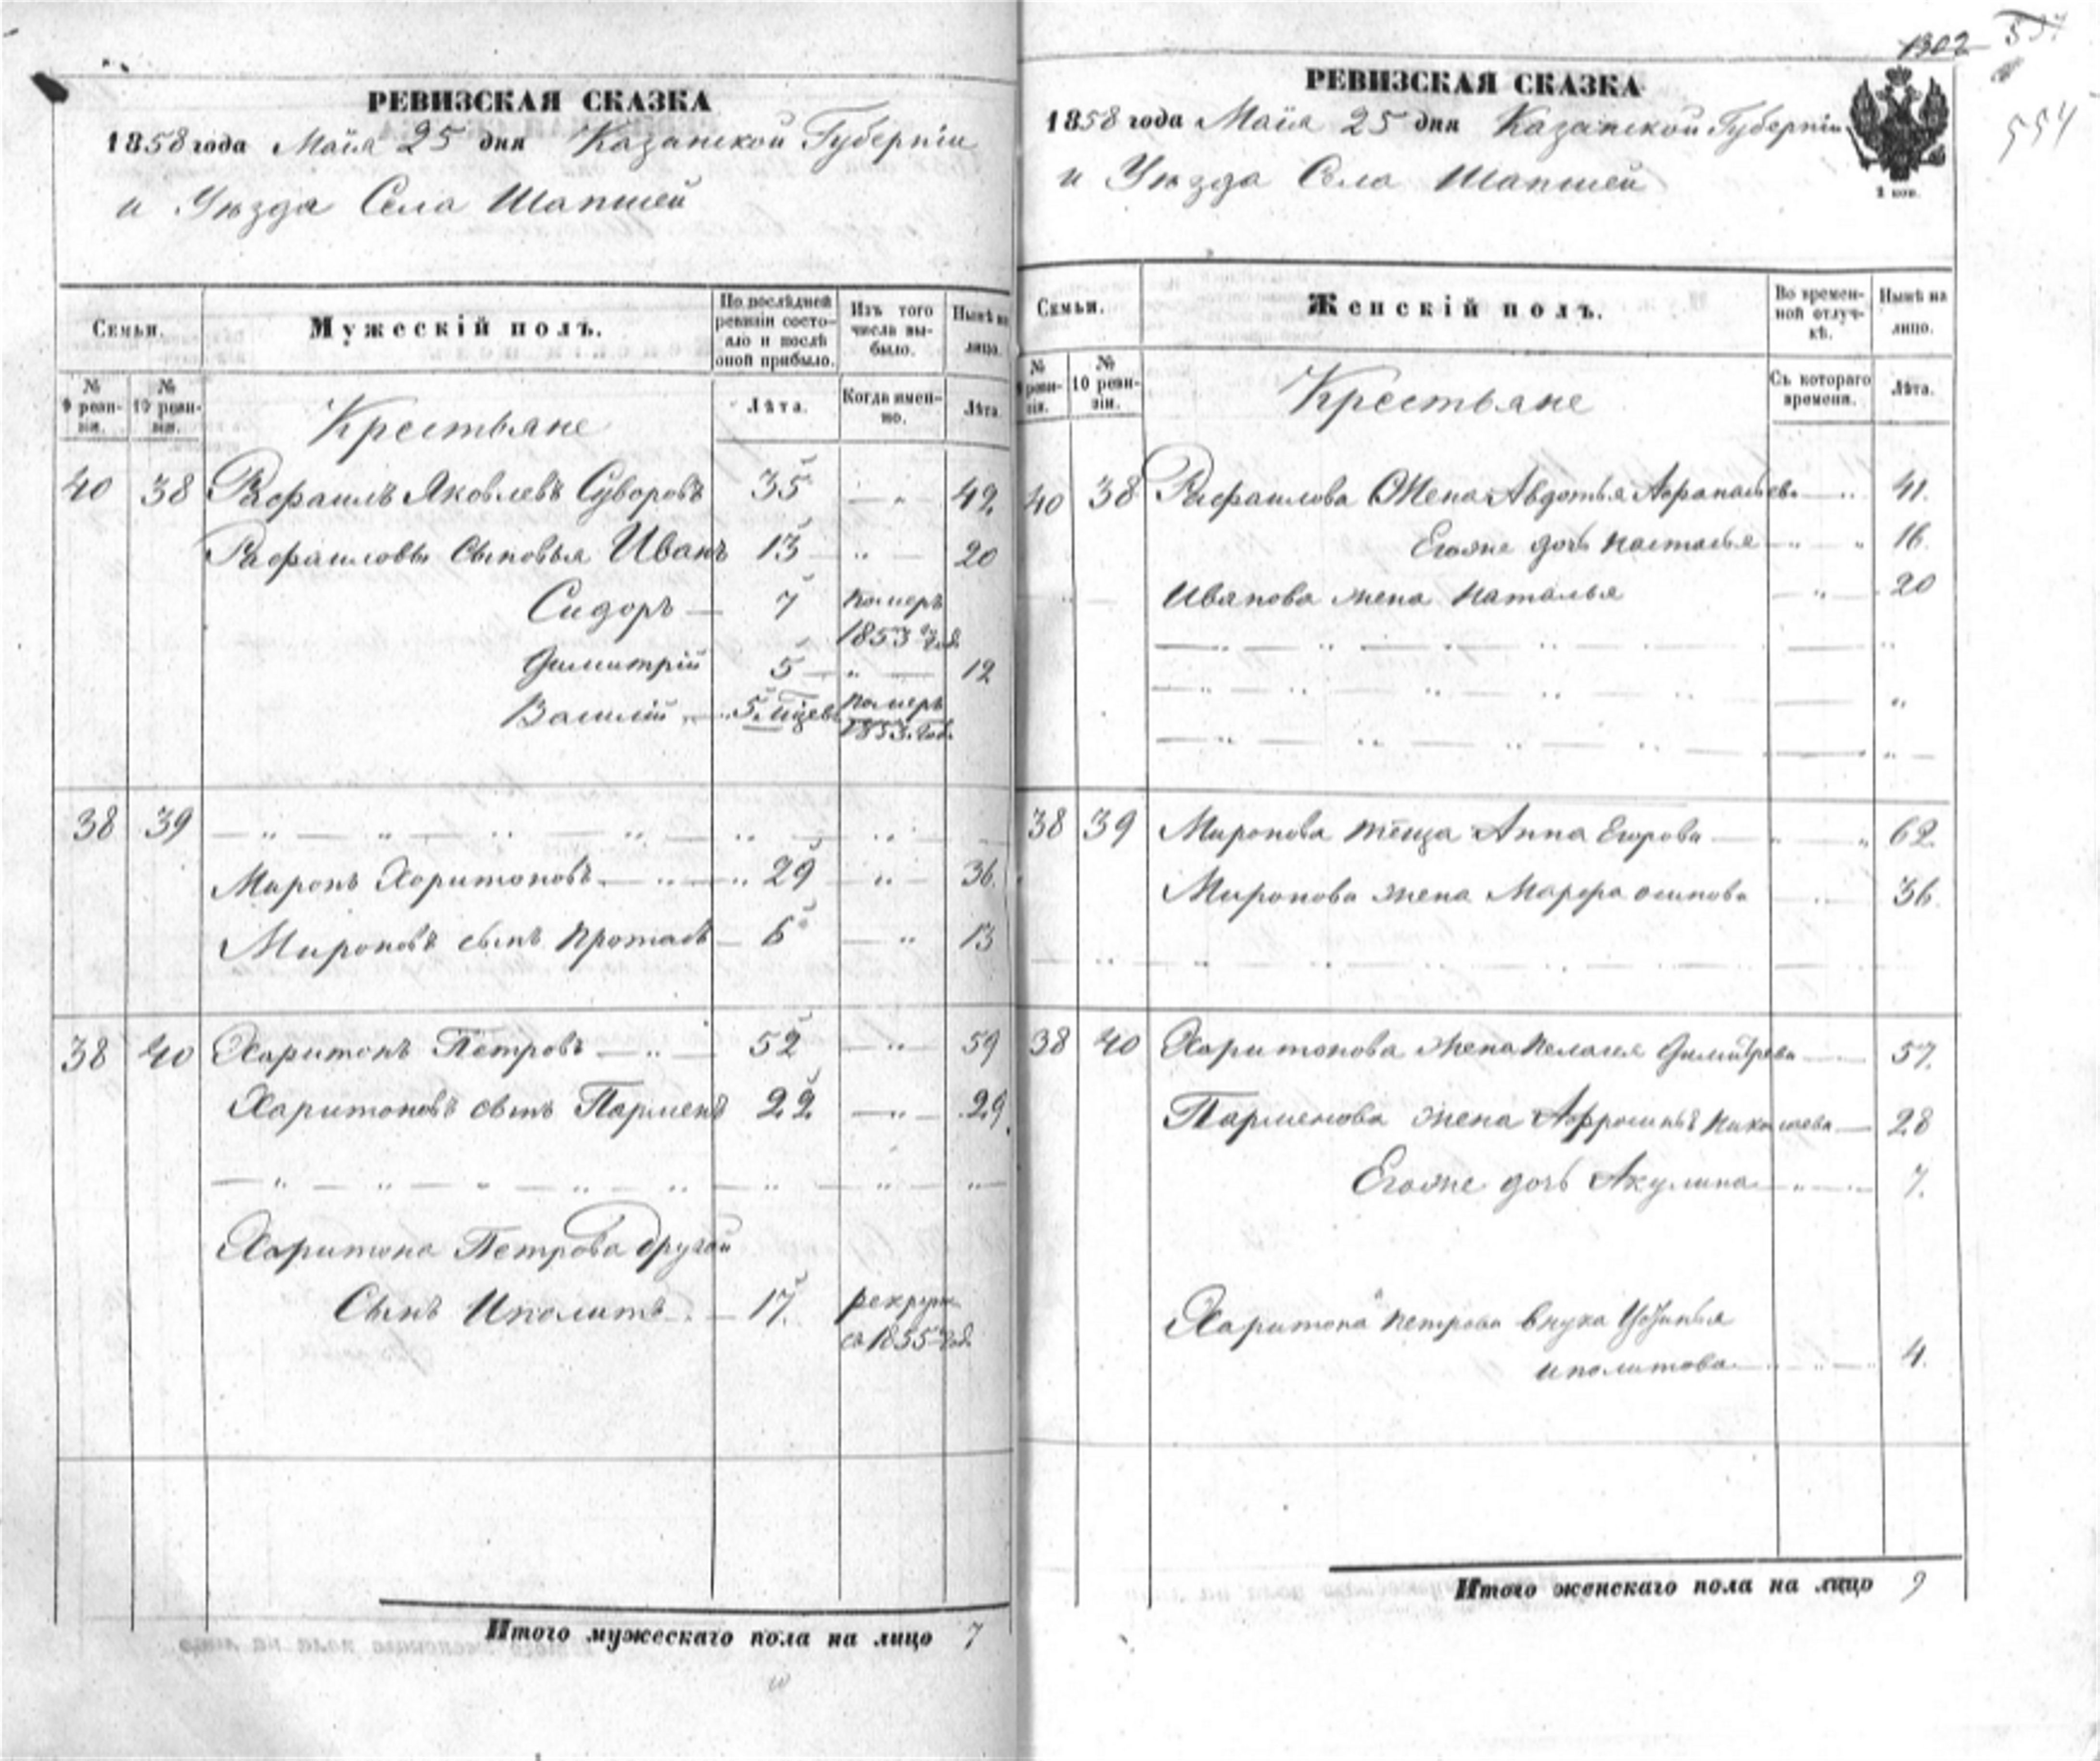 РЕВИЗСКАЯ СКАЗКА
1858 года Маія 25 дня Казанской Губерніи
и Уѣзда Села Шапшей
Семьи.
Мужескій полъ.
По послѣдней ревизіи состояло и послѣ оной прибыло.
Изъ того числа выбыло.
Нынѣ на лицо.
№ 9 ревизіи.
№ 10 ревизіи.
Крестьяне
Лѣта.
Когда именно.
Лѣта.
40 38 Рафаилъ Яковлевъ Суворовъ 35 — „ 42
Рафаиловы сыновья Иванъ 13 — „ — 20
Сидоръ — 7 померъ
1853 год.
Димитрій 5 — „ — 12
Василій „ — 5 мѣцевъ померъ
1853 год.
38 39 — „ — „ — „ — „ — „ — „ —
Миронъ Харитоновъ — „ — „ 29 — „ — 36.
Мироновъ сынъ Протасъ — 6 — „ 13
38 40 Харитонъ Петровъ — „ — 52 — „ 59
Харитоновъ сынъ Парменъ 22 — „ — 29
— „ — „ — „ — „ — „ — „ — „ — „ —
Харитона Петрова другой
Сынъ Иполитъ — 17. рекрутъ
съ 1855 год.
Итого мужескаго пола на лицо 7
1302 557
554
РЕВИЗСКАЯ СКАЗКА
1858 года Маія 25 дня Казанской Губерніи
и Уѣзда Села Шапшей
Семьи.
Женскій полъ.
Во временной отлучкѣ.
Нынѣ на лицо.
№ 9 ревизіи.
№ 10 ревизіи.
Крестьяне
Съ котораго времени.
Лѣта.
40 38 Рафаилова Жена Авдотья Афанасьева — „ 41.
Егоже дочь Настасья — „ — „ 16.
Иванова жена Наталья — „ — 20
— „ — „ — „ — „ — „ — „
— „ — „ — „ — „ — „ — „
— „ — „ — „ — „ — „ — „ —
38 39 Миронова теща Анна Егорова — „ — „ 62.
Миронова жена Марфа осипова — „ — 36.
— „ — „ — „ — „ — „ — „ —
38 40 Харитонова жена Пелагея Димитрева — 57.
Парменова жена Афросинья Николаева — 28
Егоже дочь Акулина — „ — 7.
Харитона петрова внука Устинья
иполитова — „ — 4.
Итого женскаго пола на лицо 9